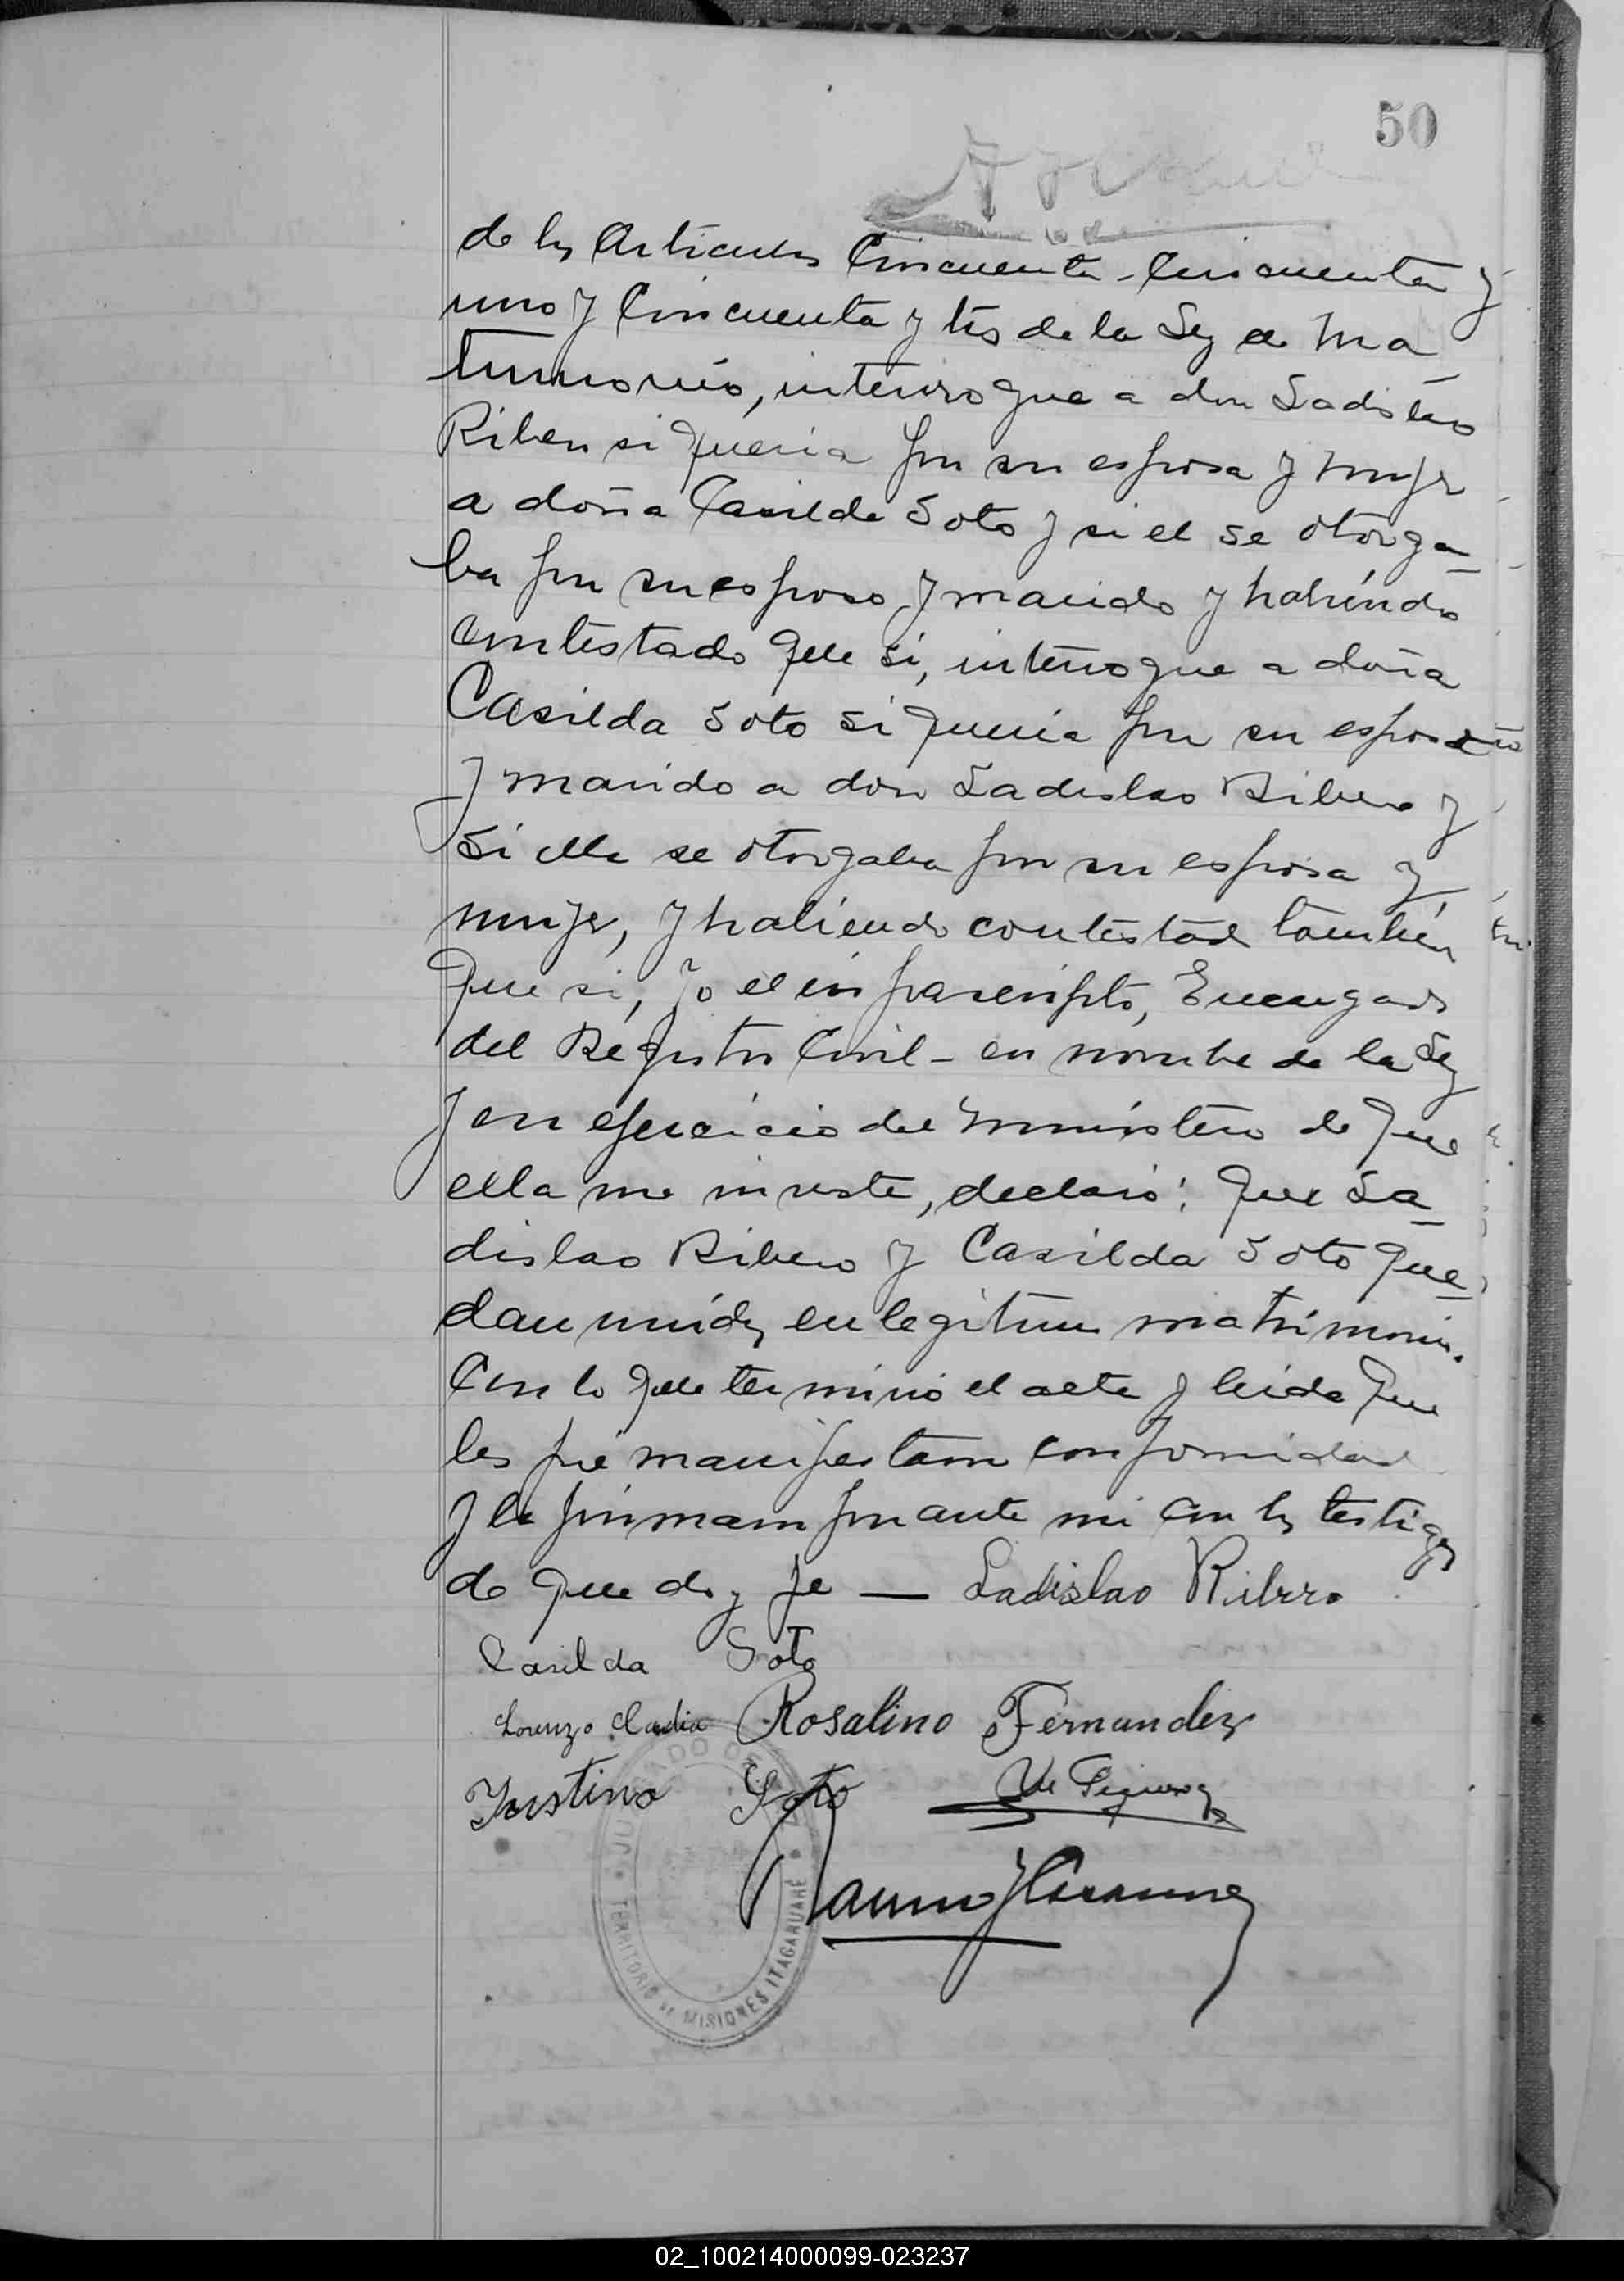 50
de los Articulos Cincuenta - Cincuenta y
uno y Cincuenta y tres de la Ley de Ma
trimonio, interrogue a don Ladislao
Ribero si queria por su esposa y mujer
a doña Casilda Soto y si el se otorga-
ba por su esposo y marido y habiendo
contestado que si, interrogue a doña
Casilda Soto si queria por su esposo
y marido a don Ladislao Ribero y
si ella se otorgaba por su esposa y
mujer, y habiendo contestado tambien
que si, yo el infrascripto, Encargado
del Registro Civil - en nombre de la Ley
y en ejercicio del ministerio de que
ella me inviste, declaro: que La-
dislao Ribero y Casilda Soto que-
dan unidos en legitimo matrimonio.
Con lo que termino el acta y leida que
les fué manifestaron conformidad
y la firmaron por ante mi con los testigos
de que doy fe — Ladislao Ribero
Casilda Soto
Lorenzo Rosalino Fernandez
Justino Soto
JUZGADO DE
TERRITORIO DE MISIONES ITACARUARÉ
02_100214000099-023237